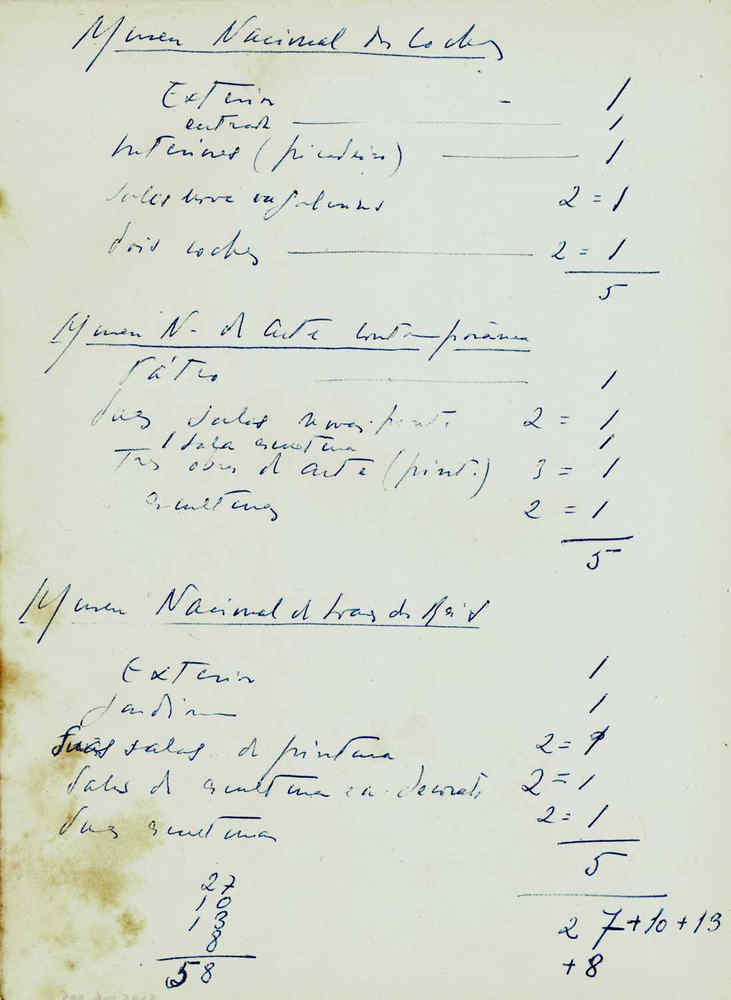 Museu Nacional dos Coches
Exterior - 1
entrada 1
Interiores (picadeiro) 1
salas nova 2 = 1
dois coches 2 = 1
5
Museu N. de Arte Contemporânea
Pátio 1
duas salas novas pint. 2 = 1
1 sala escultura 1
Tres obras de arte (pint.) 3 = 1
esculturas 2 = 1
5
Museu Nacional de Soares dos Reis
Exterior 1
Jardim 1
Duas salas de pintura 2 = 1
Salas de escultura e a. decorat. 2 = 1
duas esculturas 2 = 1
5
27
10
13
8
58
27+10+13
+8